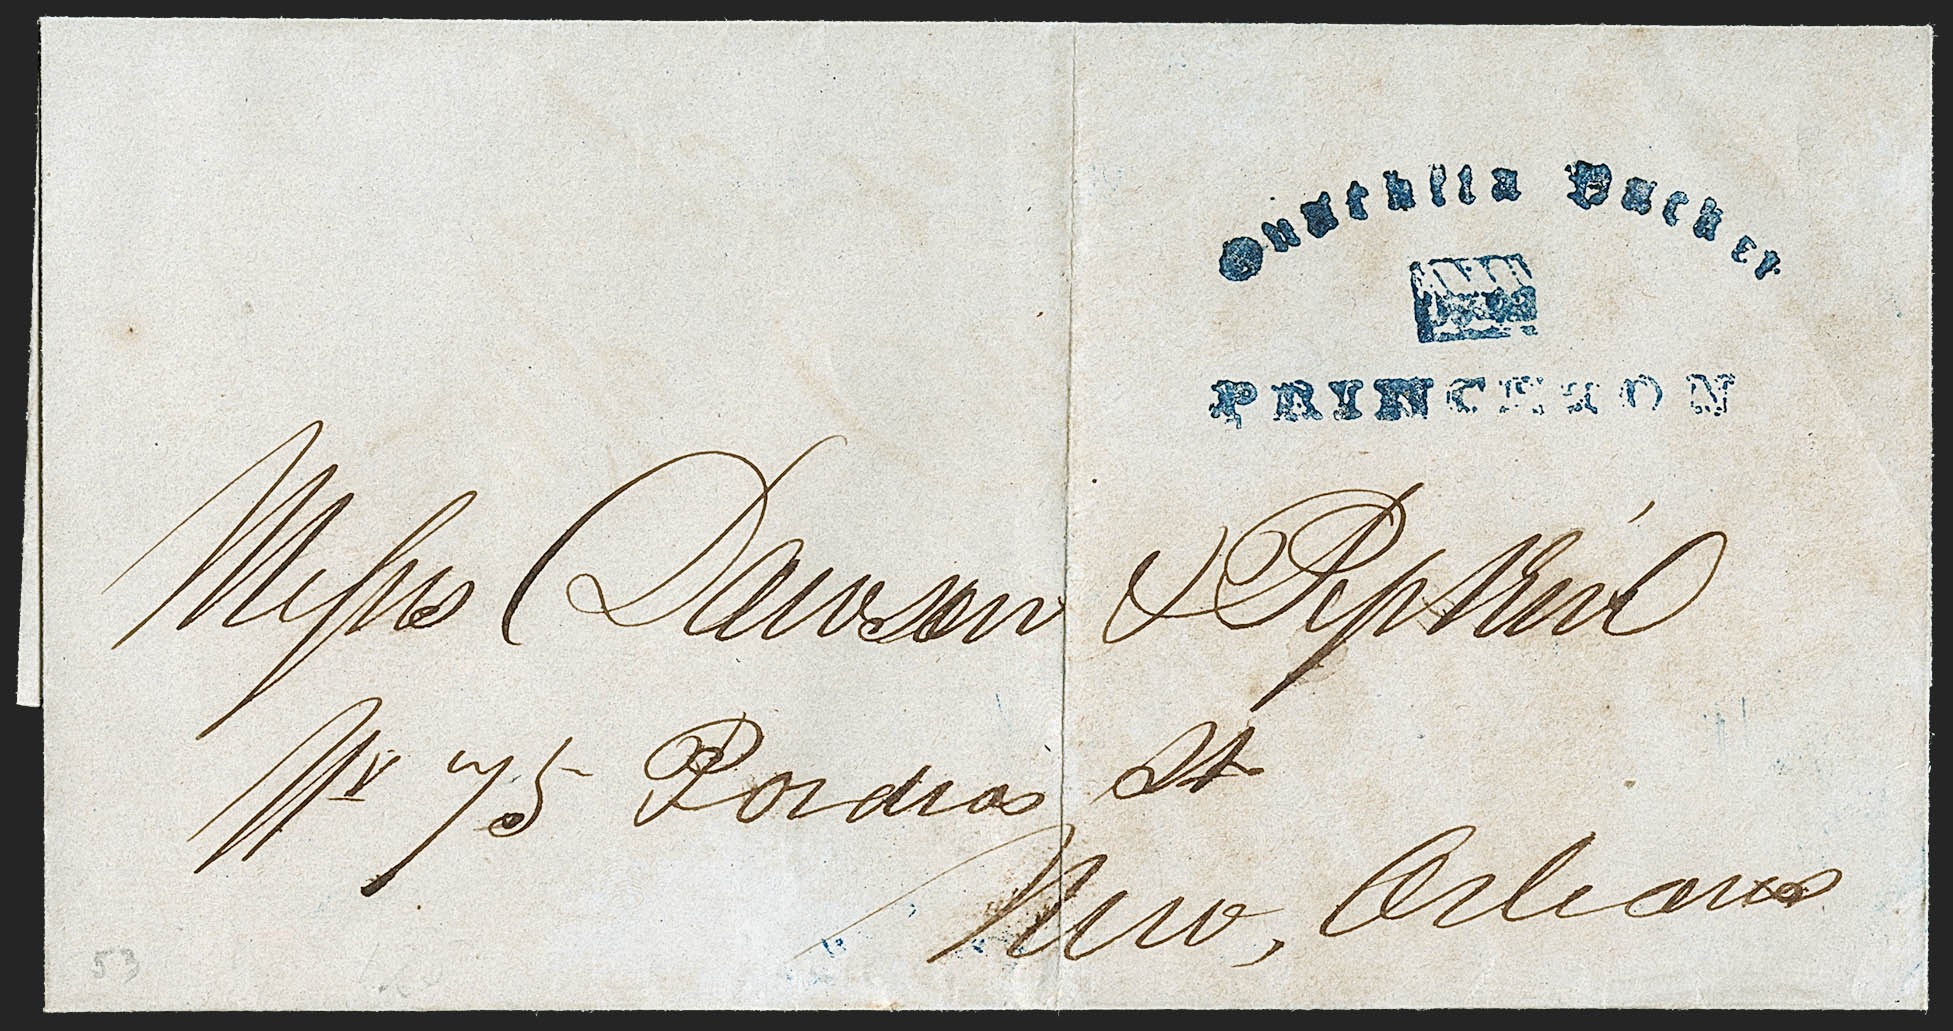 Ouachita Packet
PRINCETON
Messrs Dawson &
No 75 Poydras St
New, Orleans
53